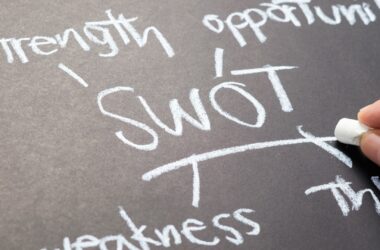 strength opportuni
SWOT
weakness th